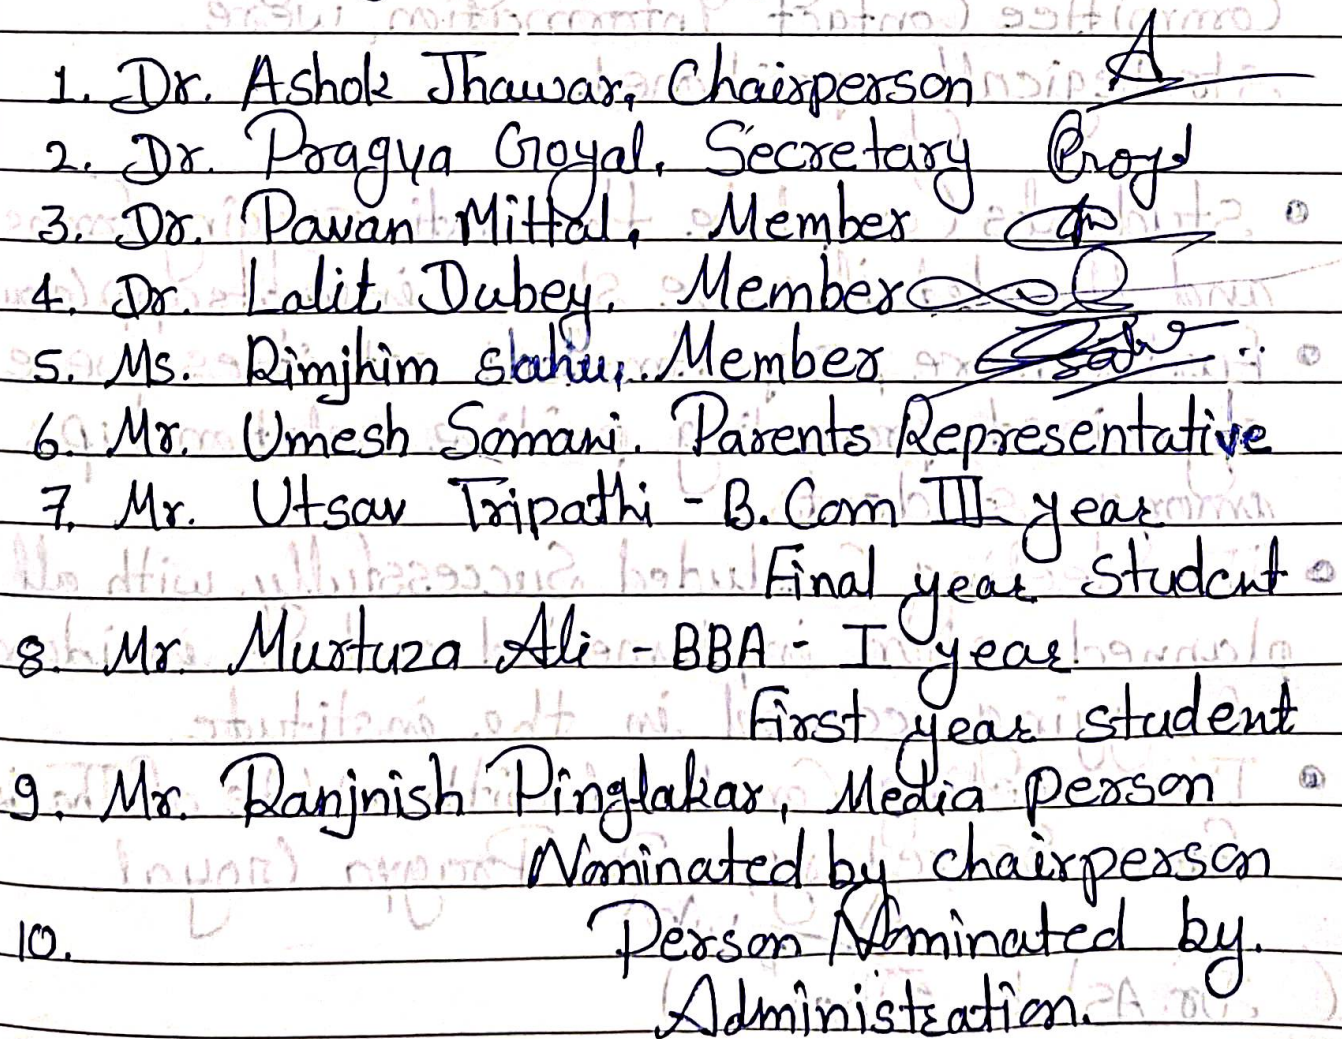 1. Dr. Ashok Jhawar, Chairperson
2. Dr. Pragya Goyal, Secretary
3. Dr. Pavan Mittal, Member
4. Dr. Lalit Dubey, Member
5. Ms. Rimjhim Sahu, Member
6. Mr. Umesh Somani. Parents Representative
7. Mr. Utsav Tripathi - B. Com III year
Final year Student
8. Mr. Murtuza Ali - BBA - I year
First year student
9. Mr. Ranjnish Pinglakar, Media person
Nominated by chairperson
10. Person Nominated by.
Administration.